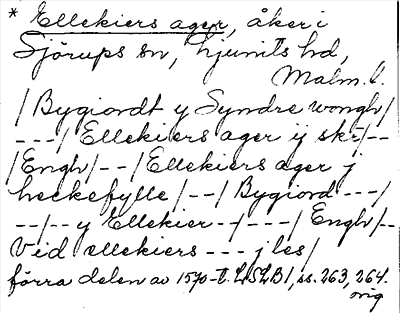 * Ellekiers ager, åker i
Sjörups sn, Ljunits hd,
Malm. l.
/Bygiordt y Syndre wongh/
---/Ellekiers ager ij skr/--
/Engh/--/Ellekiers ager j
heckefylle/--/Bygiord---/
--/--y Ellekier--/---/Engh/--
Vid ellekiers---j les/
förra delen av 1570-t. LSLB1, ss. 263, 264.
orig